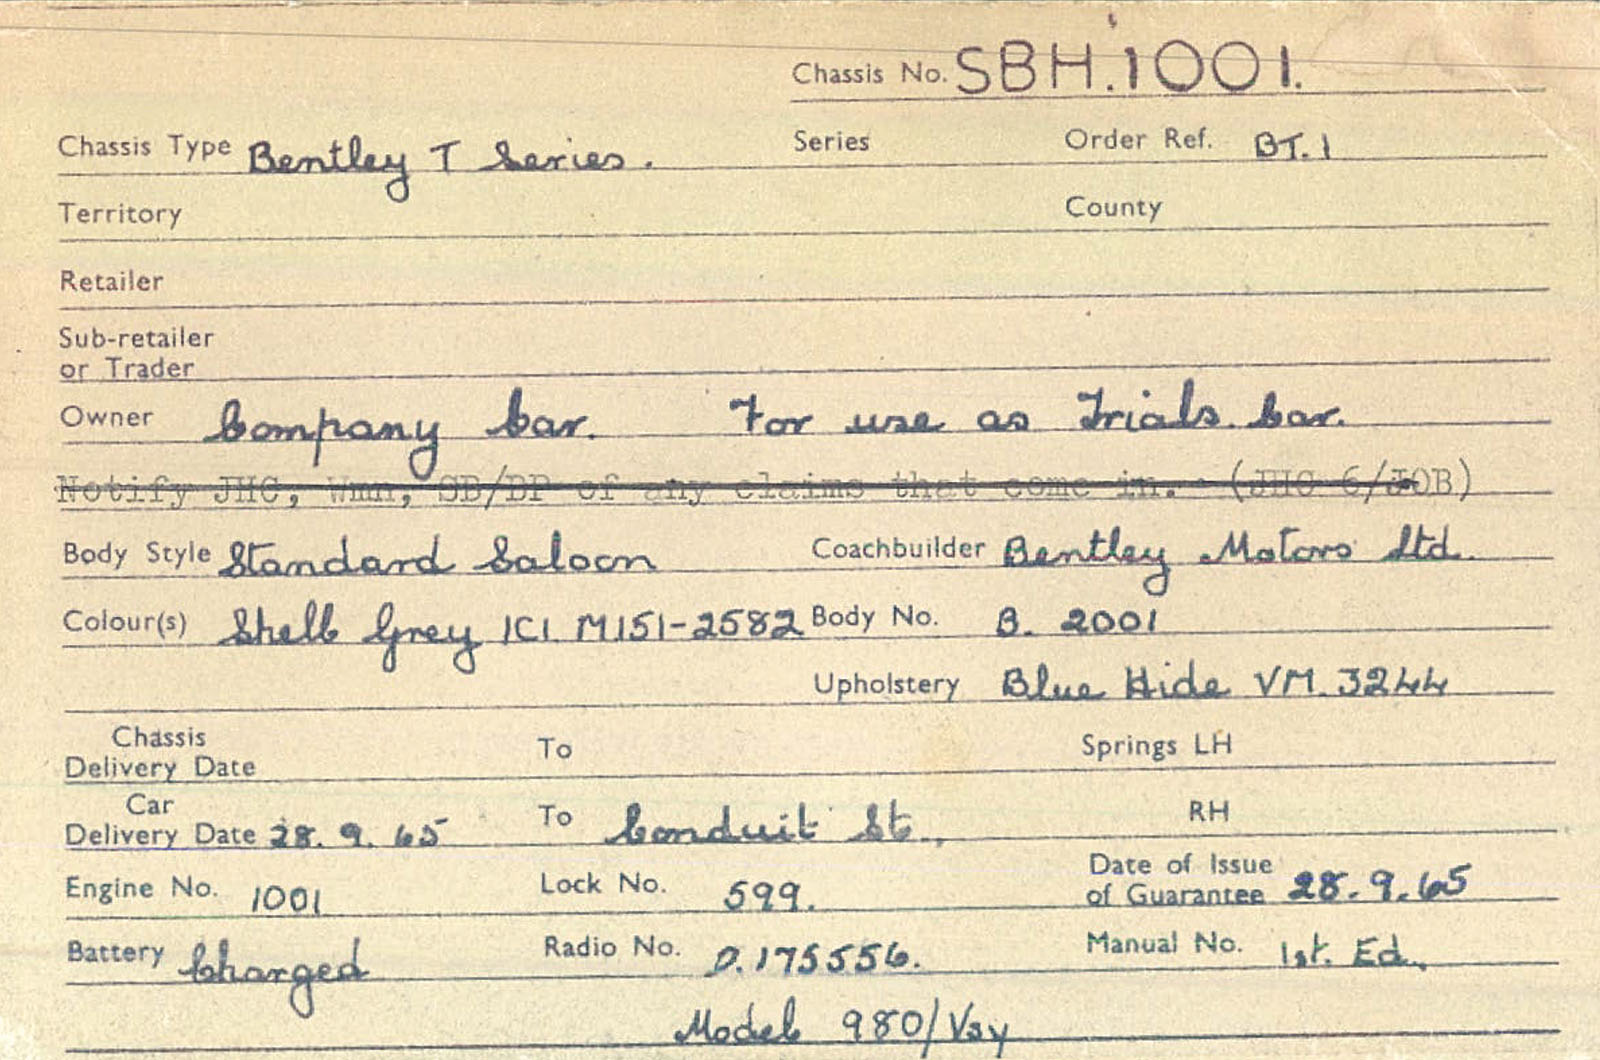 Chassis No. SBH.1001.
Chassis Type Bentley T Series. Series Order Ref. BT.1
Territory County
Retailer
Sub-retailer
or Trader
Owner Company Car. For use as Trials Car.
Notify JHC, Wmn, SB/BP of any claims that come in. (JHC 6/JOB)
Body Style Standard Saloon Coachbuilder Bentley Motors Ltd.
Colour(s) Shell Grey ICI M151-2582 Body No. B. 2001
Upholstery Blue Hide VM 3244
Chassis
Delivery Date To Springs LH
Car
Delivery Date 28.9.65 To Conduit St., RH
Engine No. 1001 Lock No. 599. Date of Issue
of Guarantee 28.9.65
Battery Charged Radio No. D.175556. Manual No. 1st. Ed.,
Model 980/